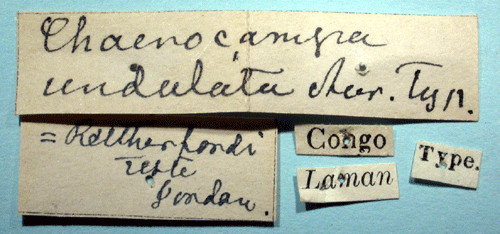 Chaerocampa
undulata Aur. Typ.
= Rutherfordi
teste
Jordan.
Congo
Laman
Type.